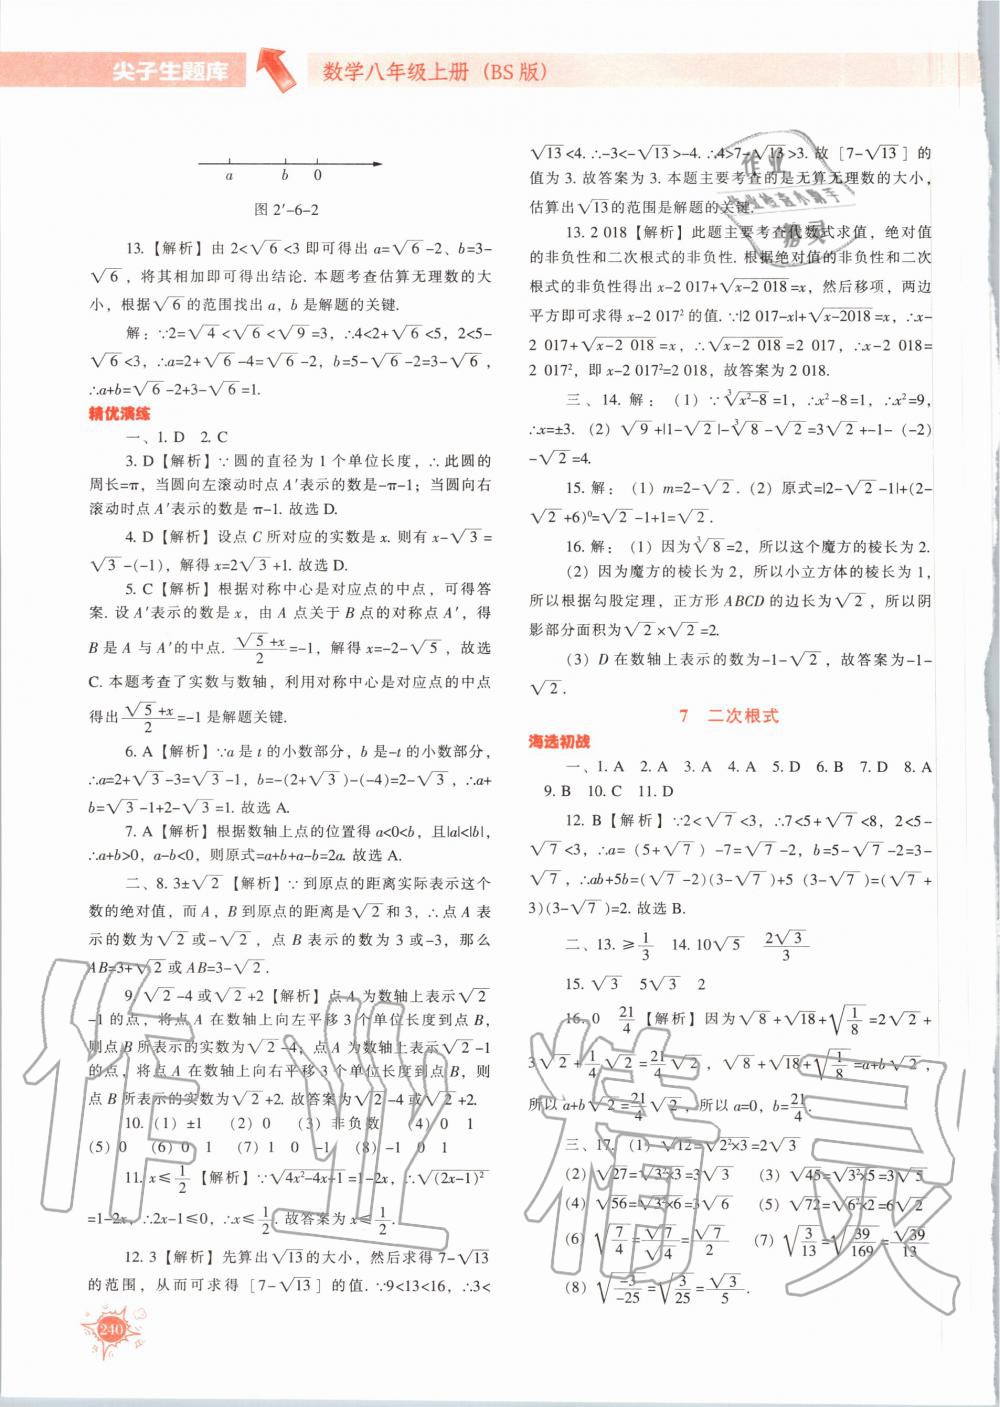 尖子生题库
数学八年级上册（BS 版）
a b 0
图 2′-6-2
13.【解析】由 2<√6<3 即可得出 a=√6-2、b=3-
√6，将其相加即可得出结论.本题考查估算无理数的大
小，根据√6的范围找出 a，b 是解题的关键.
解：∵2=√4<√6<√9=3，∴4<2+√6<5，2<5-
√6<3，∴a=2+√6-4=√6-2，b=5-√6-2=3-√6，
∴a+b=√6-2+3-√6=1.
精优演练
一、1. D 2. C
3. D【解析】∵圆的直径为 1 个单位长度，∴此圆的
周长=π，当圆向左滚动时点 A′表示的数是-π-1；当圆向右
滚动时点 A′表示的数是 π-1. 故选 D.
4. D【解析】设点 C 所对应的实数是 x. 则有 x-√3=
√3-(-1)，解得 x=2√3+1. 故选 D.
5. C【解析】根据对称中心是对应点的中点，可得答
案. 设 A′表示的数是 x，由 A 点关于 B 点的对称点 A′，得
B 是 A 与 A′的中点. (√5+x)/2=-1，解得 x=-2-√5，故选
C. 本题考查了实数与数轴，利用对称中心是对应点的中点
得出(√5+x)/2=-1 是解题关键.
6. A【解析】∵a 是 t 的小数部分，b 是-t 的小数部分，
∴a=2+√3-3=√3-1，b=-(2+√3)-(-4)=2-√3，∴a+
b=√3-1+2-√3=1. 故选 A.
7. A【解析】根据数轴上点的位置得 a<0<b，且|a|<|b|，
∴a+b>0，a-b<0，则原式=a+b+a-b=2a. 故选 A.
二、8. 3±√2【解析】∵到原点的距离实际表示这个
数的绝对值，而 A，B 到原点的距离是√2和 3，∴点 A 表
示的数为√2或-√2，点 B 表示的数为 3 或-3，那么
AB=3+√2或 AB=3-√2.
9. √2-4 或√2+2【解析】点 A 为数轴上表示√2
-1 的点，将点 A 在数轴上向左平移 3 个单位长度到点 B，
则点 B 所表示的实数为√2-4；点 A 为数轴上表示√2-1
的点，将点 A 在数轴上向右平移 3 个单位长度到点 B，则
点 B 所表示的实数为√2+2. 故答案为√2-4 或√2+2.
10.（1）±1 （2）0 （3）非负数 （4）0 1
（5）0 （6）0 1 （7）1 0 -1 （8）-1 0 1
11. x≤1/2【解析】∵√(4x²-4x+1)=1-2x，∴√((2x-1)²)
=1-2x，∴2x-1≤0，∴x≤1/2. 故答案为 x≤1/2.
12. 3【解析】先算出√13的大小，然后求得 7-√13
的范围，从而可求得［7-√13］的值. ∵9<13<16，∴3<
240
√13<4. ∴-3<-√13>-4. ∴4>7-√13>3. 故［7-√13］的
值为 3. 故答案为 3. 本题主要考查的是无算无理数的大小，
估算出√13的范围是解题的关键.
13. 2 018【解析】此题主要考查代数式求值，绝对值
的非负性和二次根式的非负性. 根据绝对值的非负性和二次
根式的非负性得出 x-2 017+√(x-2 018)=x，然后移项，两边
平方即可求得 x-2 017²的值. ∵|2 017-x|+√(x-2018)=x，∴x-
2 017+√(x-2 018)=x，∴√(x-2 018)=2 017，∴x-2 018=
2 017²，即 x-2 017²=2 018，故答案为 2 018.
三、14. 解：（1）∵∛(x²-8)=1，∴x²-8=1，∴x²=9，
∴x=±3.（2）√9+|1-√2|-∛8-√2=3√2+-1-(-2)
-√2=4.
15. 解：（1）m=2-√2.（2）原式=|2-√2-1|+(2-
√2+6)⁰=√2-1+1=√2.
16. 解：（1）因为∛8=2，所以这个魔方的棱长为 2.
（2）因为魔方的棱长为 2，所以小立方体的棱长为 1，
所以根据勾股定理，正方形 ABCD 的边长为√2，所以阴
影部分面积为√2×√2=2.
（3）D 在数轴上表示的数为-1-√2，故答案为-1-
√2.
7 二次根式
海选初战
一、1. A 2. A 3. A 4. A 5. D 6. B 7. D 8. A
9. B 10. C 11. D
12. B【解析】∵2<√7<3，∴7<5+√7<8，2<5-
√7<3，∴a=（5+√7）-7=√7-2，b=5-√7-2=3-
√7，∴ab+5b=(√7-2)(3-√7)+5（3-√7)=(√7+
3)(3-√7)=2. 故选 B.
二、13. ≥1/3 14. 10√5 2√3/3
15. √3 5√3 2
16. 0 21/4【解析】因为√8+√18+√(1/8)=2√2+
3√2+1/4√2=21/4√2，√8+√18+√(1/8)=a+b√2，
所以 a+b√2=21/4√2，所以 a=0，b=21/4.
三、17.（1）√12=√(2²×3)=2√3
（2）√27=√(3²×3)=3√3 （3）√45=√(3²×5)=3√5
（4）√56=√(3²×6)=3√6 （5）√72=√(6²×2)=6√2
（6）√(7/4)=√7/√4=√7/2 （7）√(3/13)=√(39/169)=√39/13
（8）√(-3/-25)=√(3/25)=√3/5.
作业
作业检查小助手
精灵
作业精灵